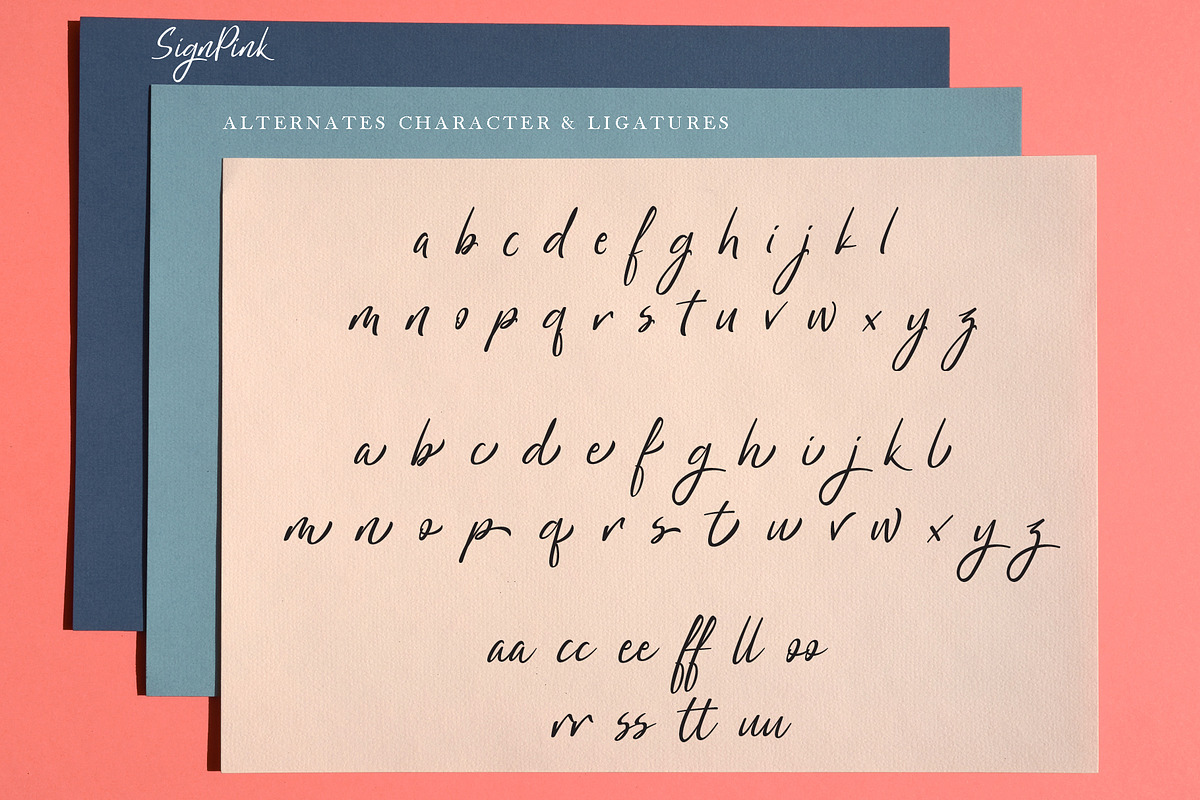 SignPink
ALTERNATES CHARACTER & LIGATURES
a b c d e f g h i j k l
m n o p q r s t u v w x y z
a b c d e f g h i j k l
m n o p q r s t u v w x y z
aa cc ee ff ll oo
rr ss tt uu